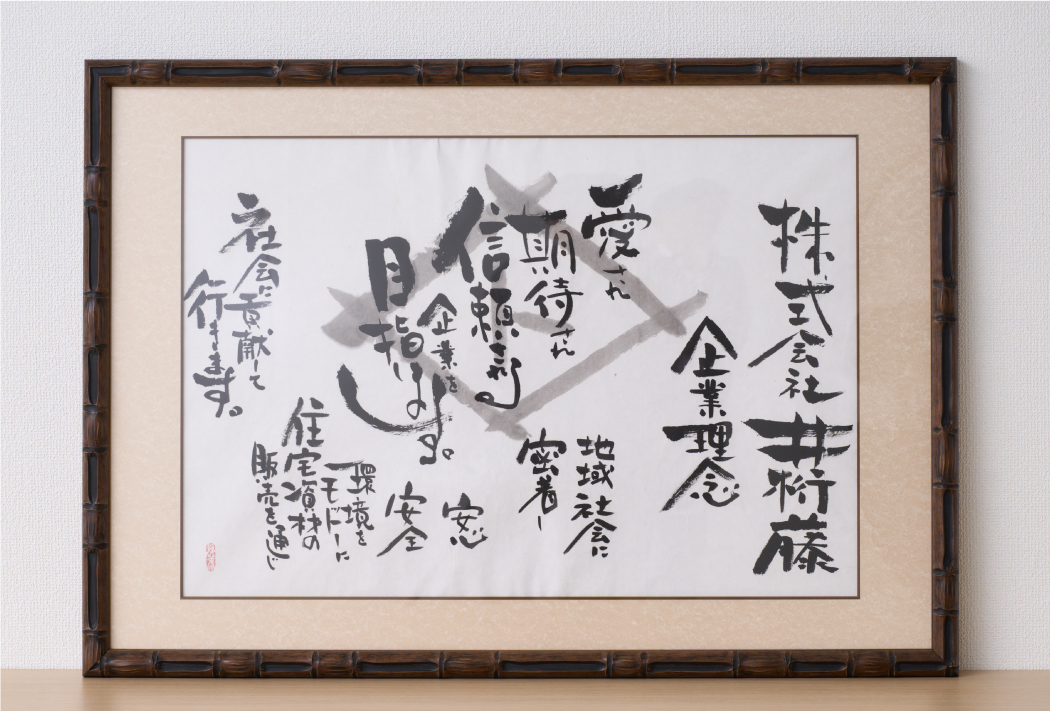 株式会社井桁藤
企業理念
愛され
期待され
信頼される
企業を
目指します。
地域社会に
密着し
安心
安全
環境を
モットーに
住宅資材の
販売を通じ
社会に貢献して
行きます。